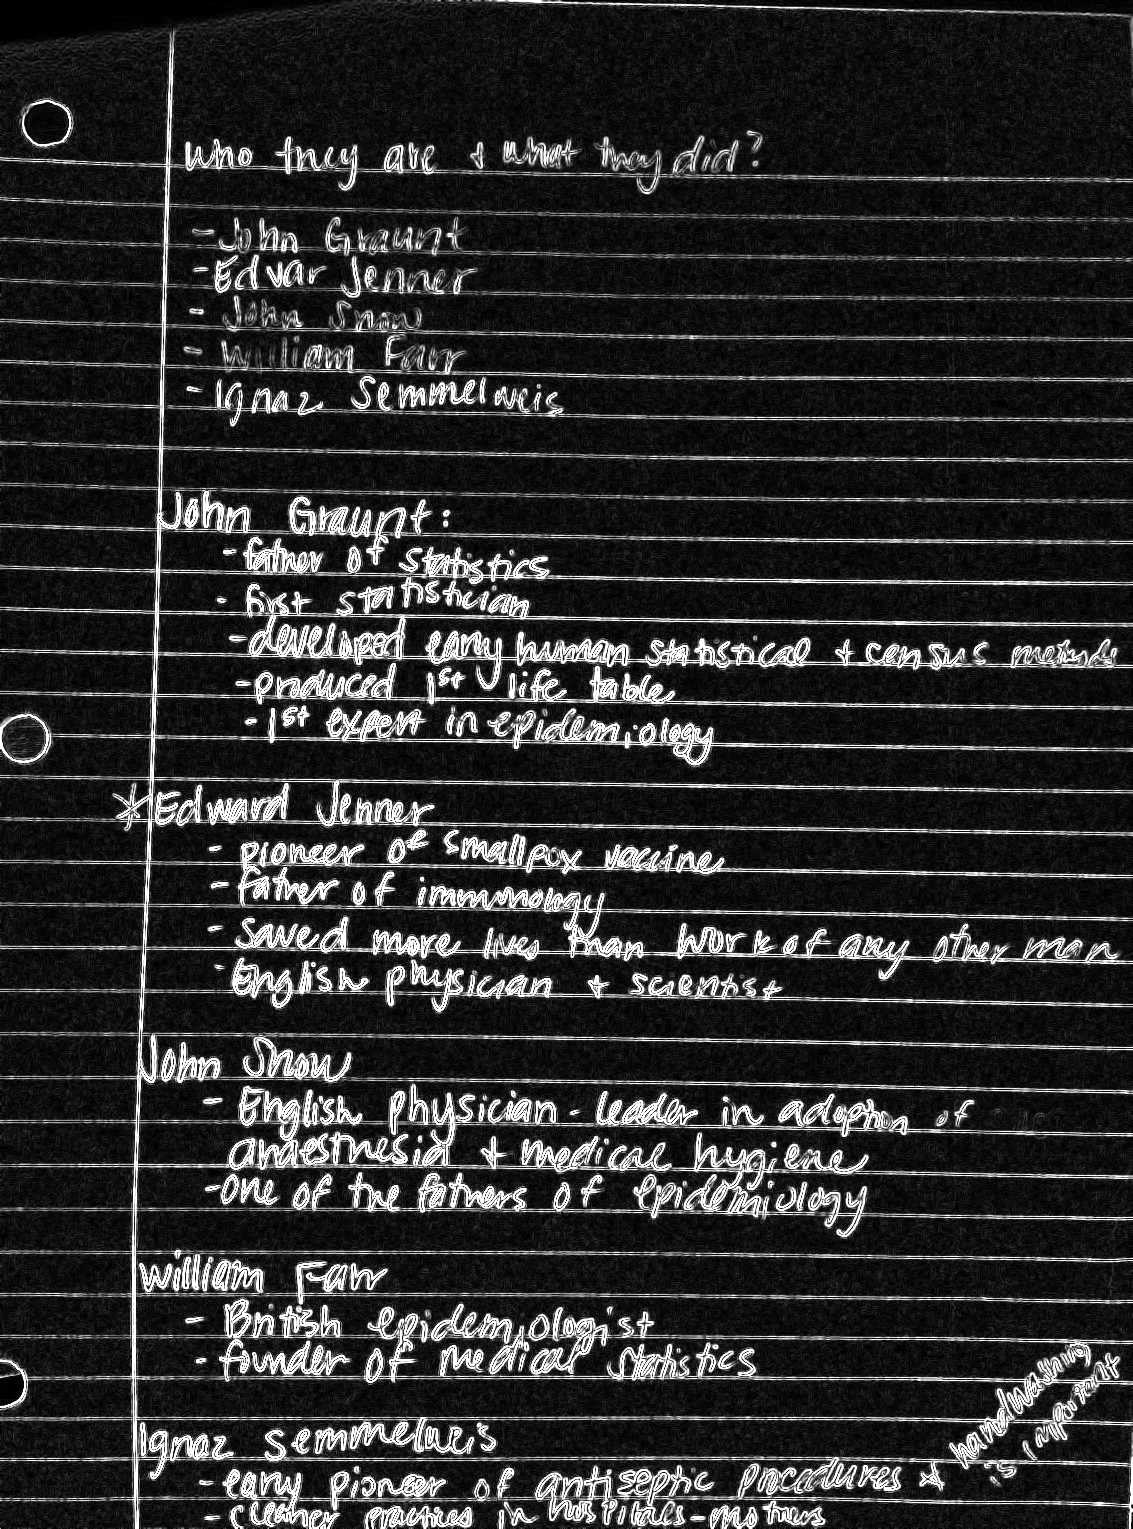 Who they are + what they did?
- John Graunt
- Edvar Jenner
- John Snow
- William Farr
- Ignaz Semmelweis
John Graunt:
- father of statistics
- first statistician
- developed early human statistical + census methods
- produced 1st life table
- 1st expert in epidemiology
* Edward Jenner
- pioneer of smallpox vaccine
- father of immunology
- saved more lives than work of any other man
- English physician + scientist
John Snow
- English physician - leader in adoption of
anaesthesia + medical hygiene
- one of the fathers of epidemiology
William Farr
- British epidemiologist
- founder of medical statistics
Ignaz Semmelweis
- early pioneer of antiseptic procedures * handwashing
is important
- cleaner practices in hospitals - mothers